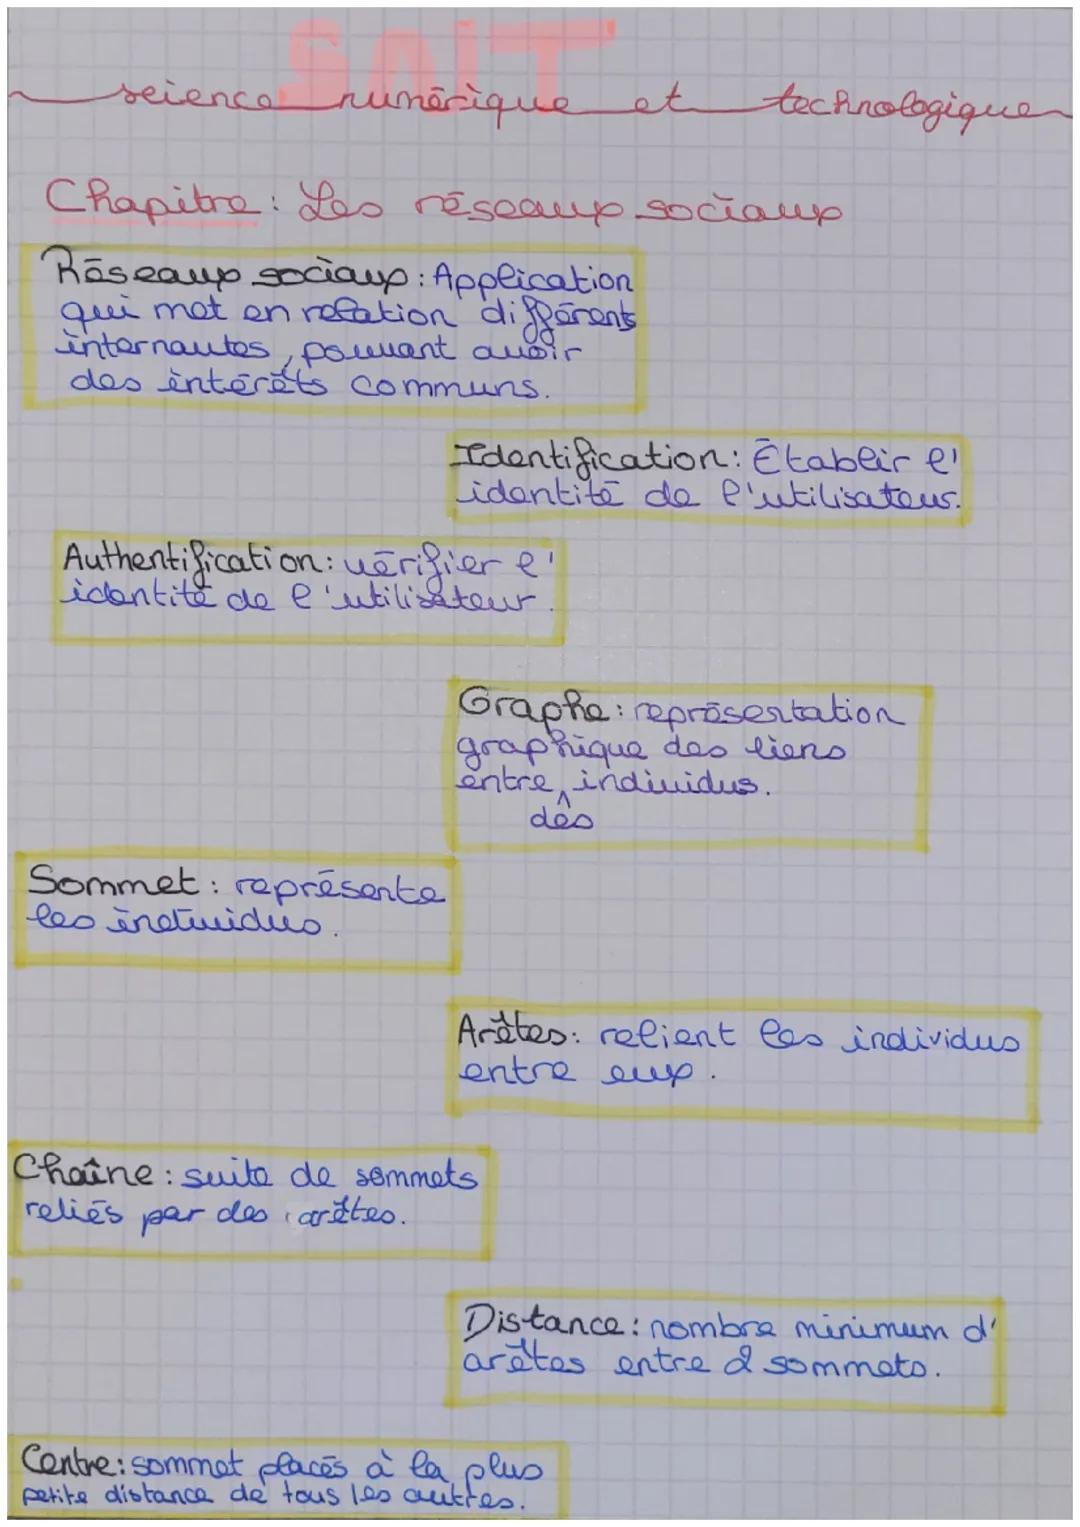 SNT
science numérique et technologique
Chapitre : Les réseaux sociaux
Réseaux sociaux : Application
qui met en relation différents
internautes, pouvant avoir
des intérêts communs.
Identification : Établir l'
identité de l'utilisateur.
Authentification : vérifier l'
identité de l'utilisateur.
Graphe : représentation
graphique des liens
entre individus.
des
Sommet : représente
les individus.
Arêtes : relient les individus
entre eux.
Chaîne : suite de sommets
reliés par des arêtes.
Distance : nombre minimum d'
arêtes entre 2 sommets.
Centre : sommet placés à la plus
petite distance de tous les autres.